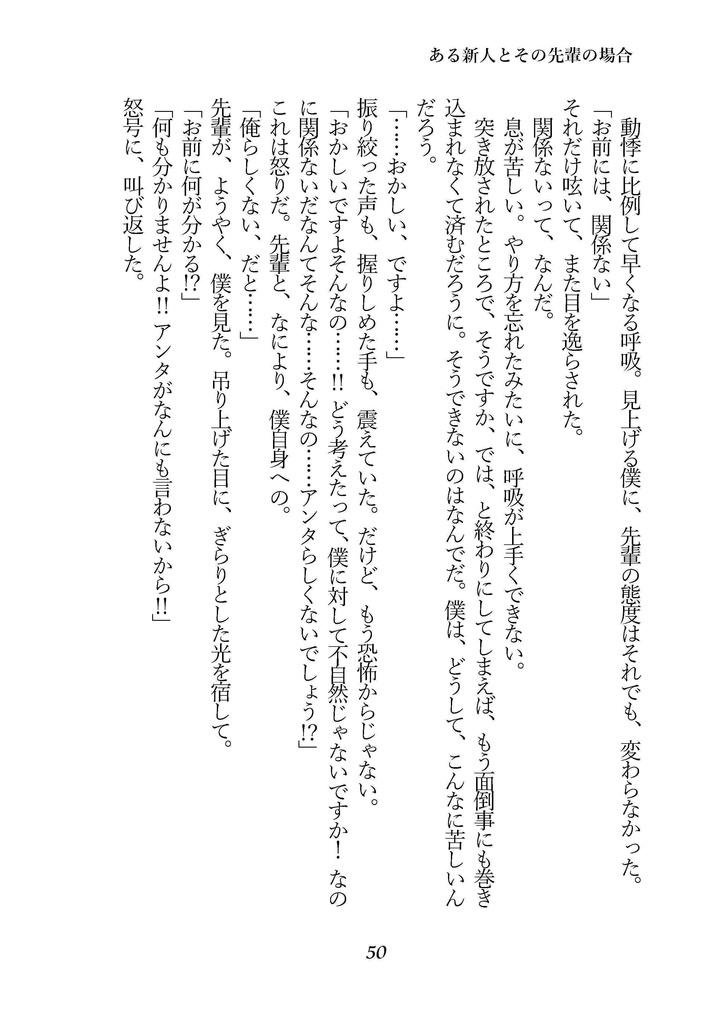 ある新人とその先輩の場合
動悸に比例して早くなる呼吸。見上げる僕に、先輩の態度はそれでも、変わらなかった。
「お前には、関係ない」
それだけ呟いて、また目を逸らされた。
関係ないって、なんだ。
息が苦しい。やり方を忘れたみたいに、呼吸が上手くできない。
突き放されたところで、そうですか、では、と終わりにしてしまえば、もう面倒事にも巻き
込まれなくて済むだろうに。そうできないのはなんでだ。僕は、どうして、こんなに苦しいん
だろう。
「……おかしい、ですよ……」
振り絞った声も、握りしめた手も、震えていた。だけど、もう恐怖からじゃない。
「おかしいですよそんなの……!! どう考えたって、僕に対して不自然じゃないですか！ なの
に関係ないだなんてそんな……そんなの……アンタらしくないでしょう!?」
これは怒りだ。先輩と、なにより、僕自身への。
「俺らしくない、だと……」
先輩が、ようやく、僕を見た。吊り上げた目に、ぎらりとした光を宿して。
「お前に何が分かる!?」
「何も分かりませんよ!! アンタがなんにも言わないから!!」
怒号に、叫び返した。
50